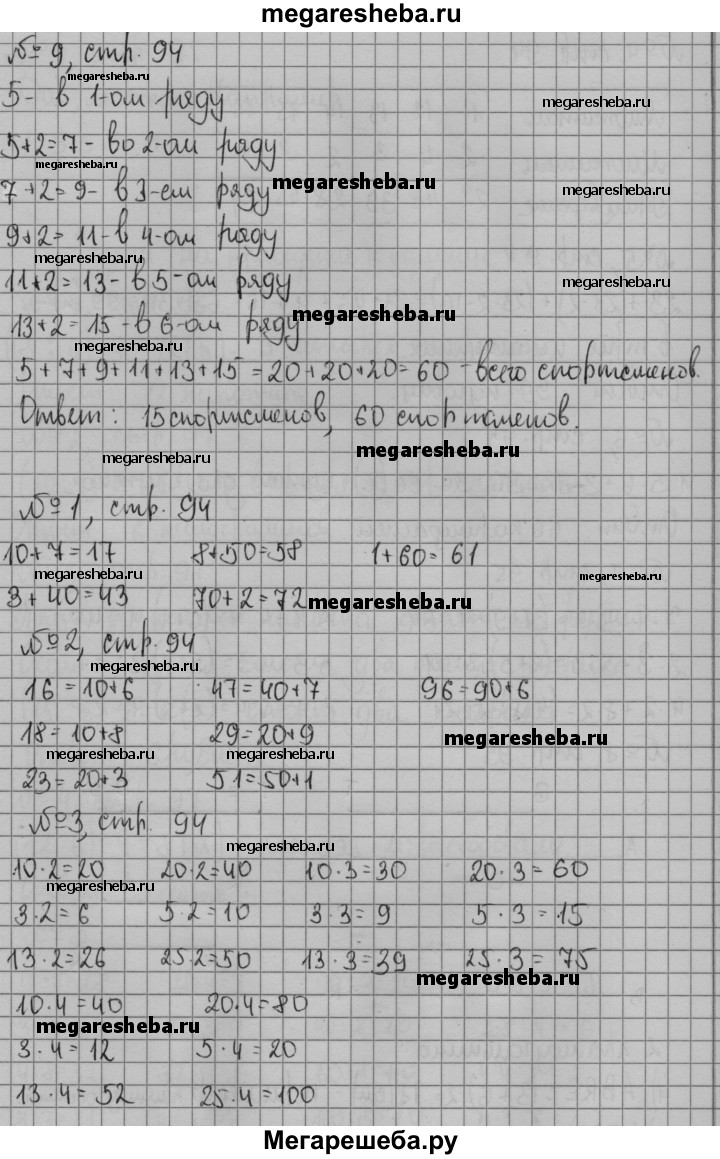 megaresheba.ru
№ 9, стр. 94
megaresheba.ru
5 - в 1-ом ряду
megaresheba.ru
5+2=7 - во 2-ом ряду
megaresheba.ru
7+2=9 - в 3-ем ряду
megaresheba.ru
megaresheba.ru
9+2=11 - в 4-ом ряду
megaresheba.ru
11+2=13 - в 5-ом ряду
megaresheba.ru
megaresheba.ru
13+2=15 - в 6-ом ряду
megaresheba.ru
5+7+9+11+13+15=20+20+20=60 - всего спортсменов.
Ответ: 15 спортсменов, 60 спортсменов.
megaresheba.ru
megaresheba.ru
№ 1, стр. 94
10+7=17 8+50=58 1+60=61
megaresheba.ru
megaresheba.ru
3+40=43 70+2=72
megaresheba.ru
№ 2, стр. 94
megaresheba.ru
16=10+6 47=40+7 96=90+6
18=10+8 29=20+9
megaresheba.ru
megaresheba.ru
megaresheba.ru
23=20+3 51=50+1
№ 3, стр. 94
megaresheba.ru
10·2=20 20·2=40 10·3=30 20·3=60
megaresheba.ru
3·2=6 5·2=10 3·3=9 5·3=15
13·2=26 25·2=50 13·3=39 25·3=75
megaresheba.ru
10·4=40 20·4=80
megaresheba.ru
3·4=12 5·4=20
13·4=52 25·4=100
Мегарешеба.ру